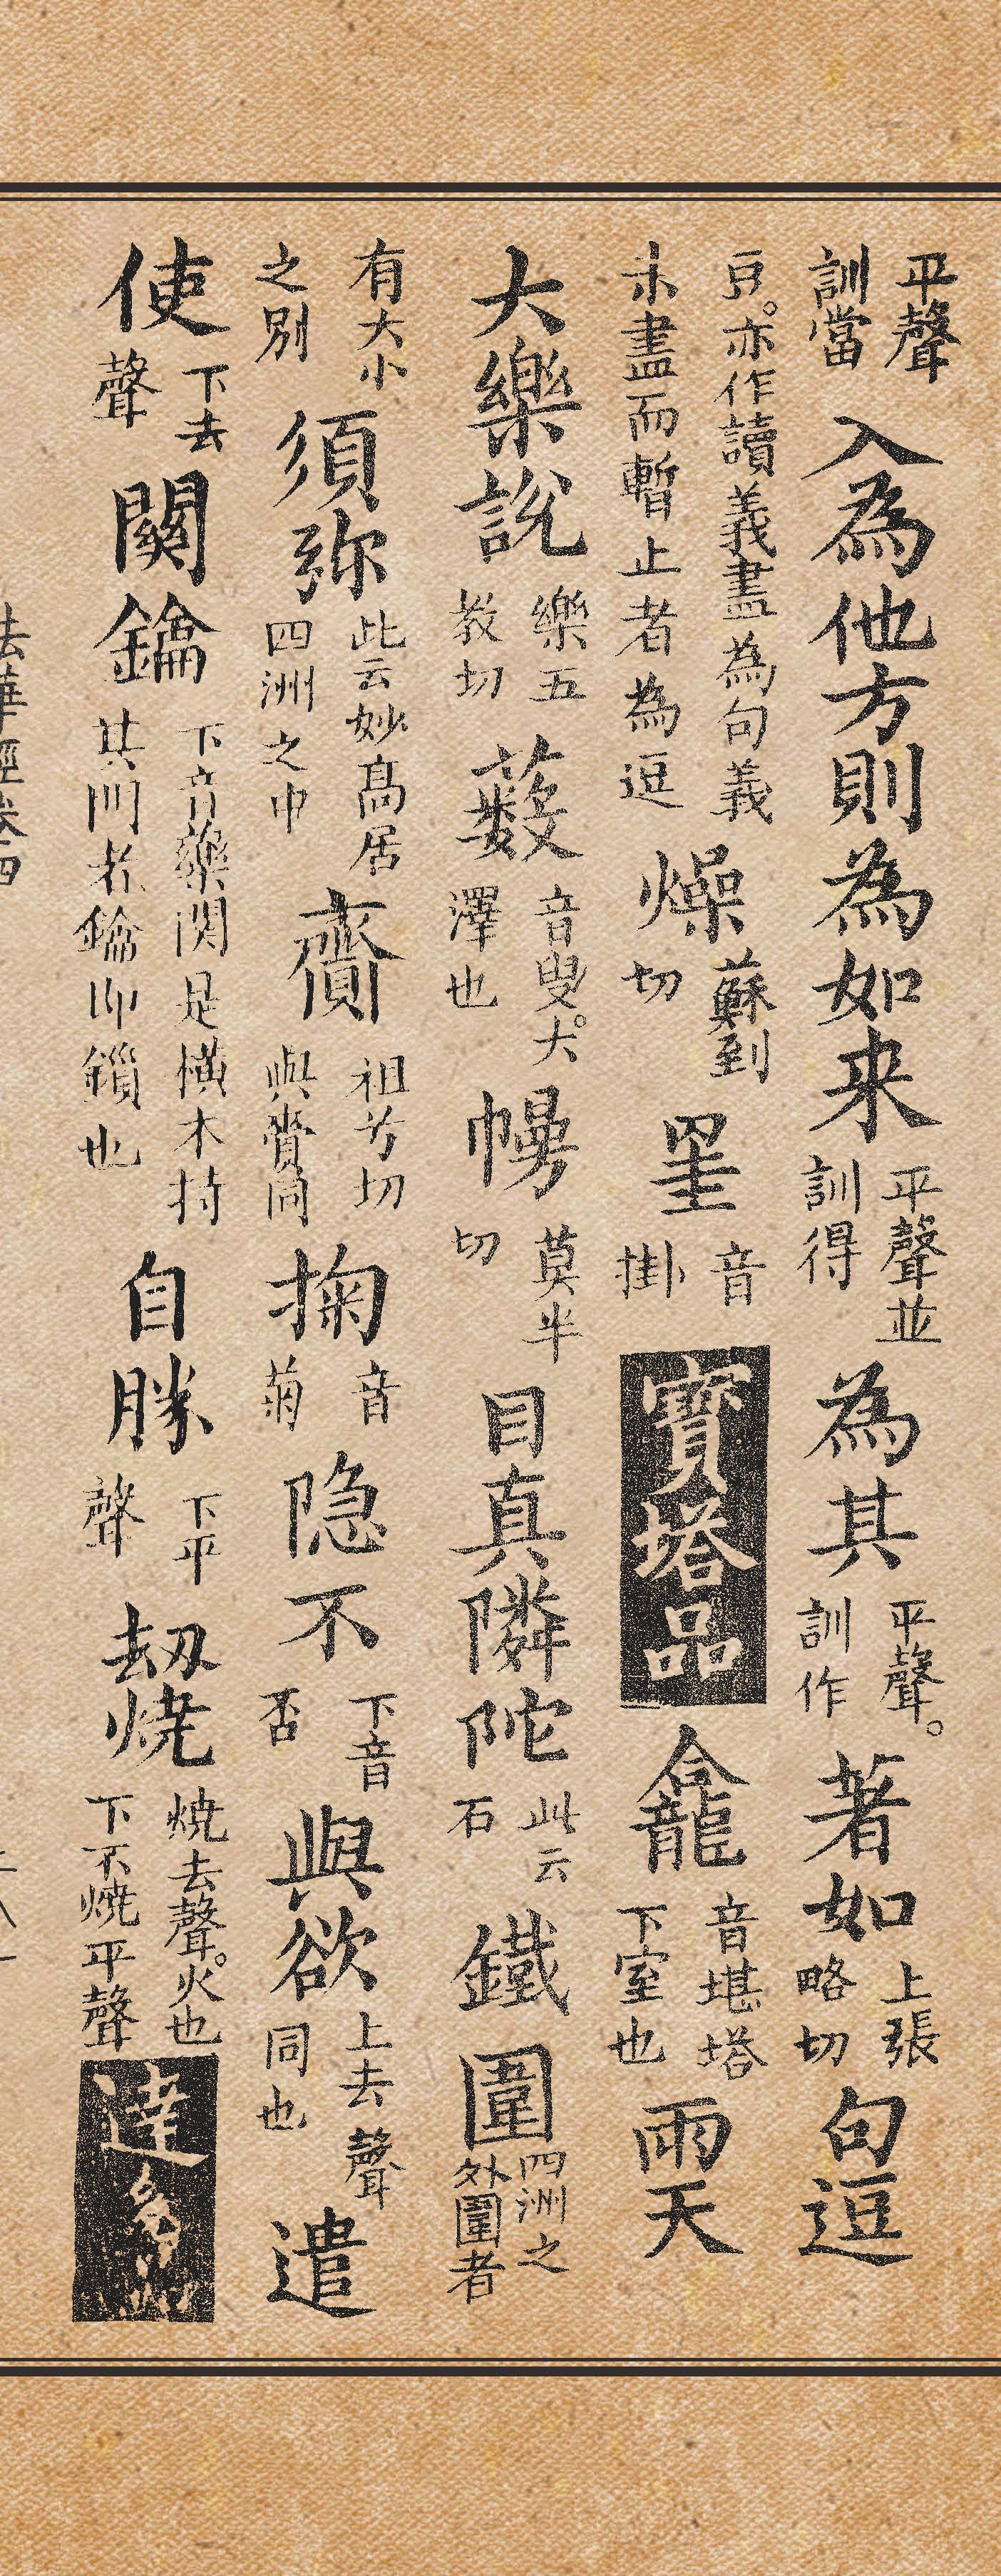 平聲訓當入為他方則為如来平聲並訓得為其平聲。訓作著如上張略切句逗
豆。亦作讀義盡為句義未盡而暫止者為逗燥蘇到切罣音掛寶塔品龕音堪塔下室也雨天
大樂說樂五教切藪音叟。大澤也幔莫半切目真隣陀此云石鐵圍四洲之外圍者
有大小之別須弥此云妙高居四洲之中齎祖兮切與賫同掬音菊隐不下音否與欲上去聲同也遣
使下去聲關鑰下音藥関是横木持其門者鑰即鎖也自勝下平聲劫燒燒去聲。火也下不燒平聲達多
法華經卷四